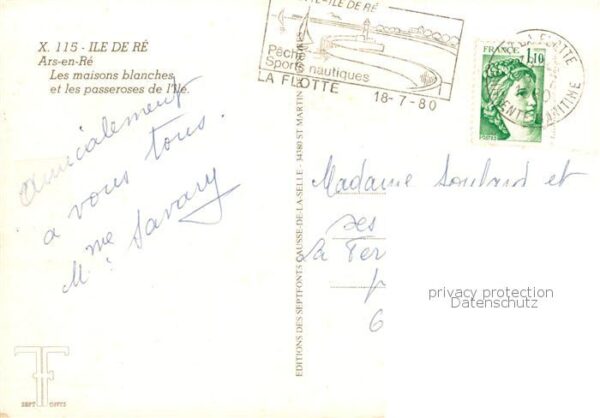 X. 115 - ILE DE RÉ
Ars-en-Ré
Les maisons blanches
et les passeroses de l'Ile.
Amicalement
à vous tous.
Mme Savary
SEPT FONTS
EDITIONS DES SEPTFONTS SAUSSE-DE-LA-SELLE - 34380 ST MARTIN
ILE DE RÉ
Pêche
Sports nautiques
LA FLOTTE
18-7-80
FRANCE
1,10
LA FLOTTE
MARITIME
Madame et
ses
La Fer
privacy protection
Datenschutz